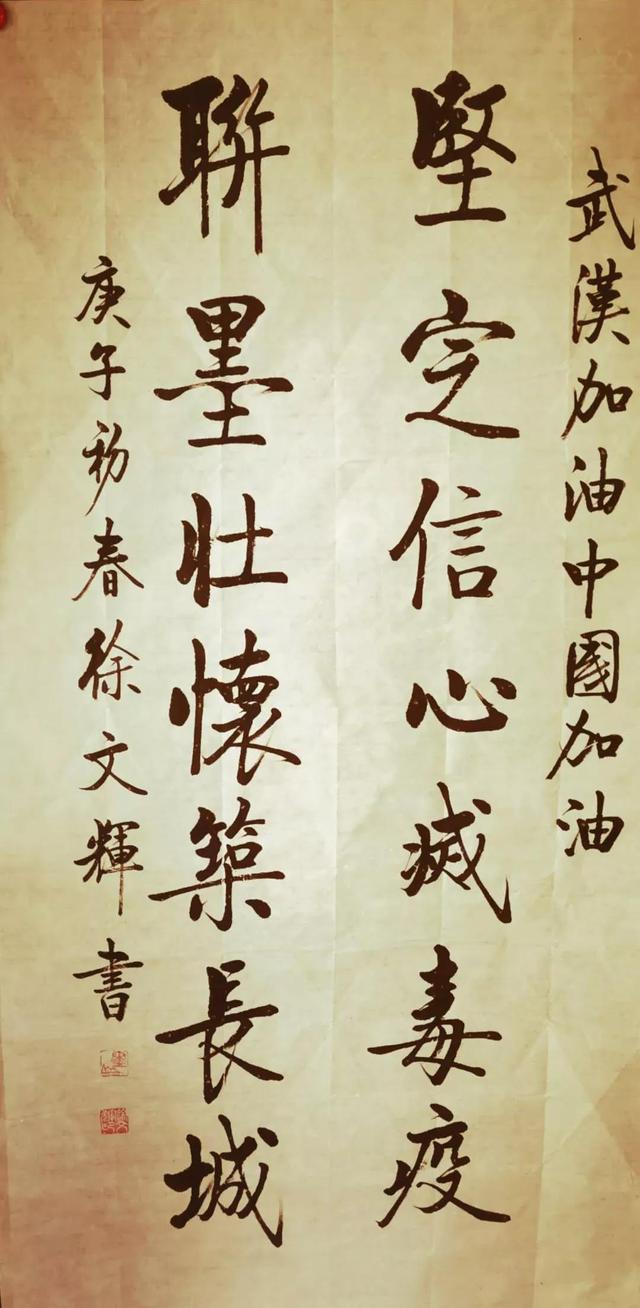 武漢加油中國加油
堅定信心滅毒疫
聨墨壯懷築長城
庚子初春徐文輝書